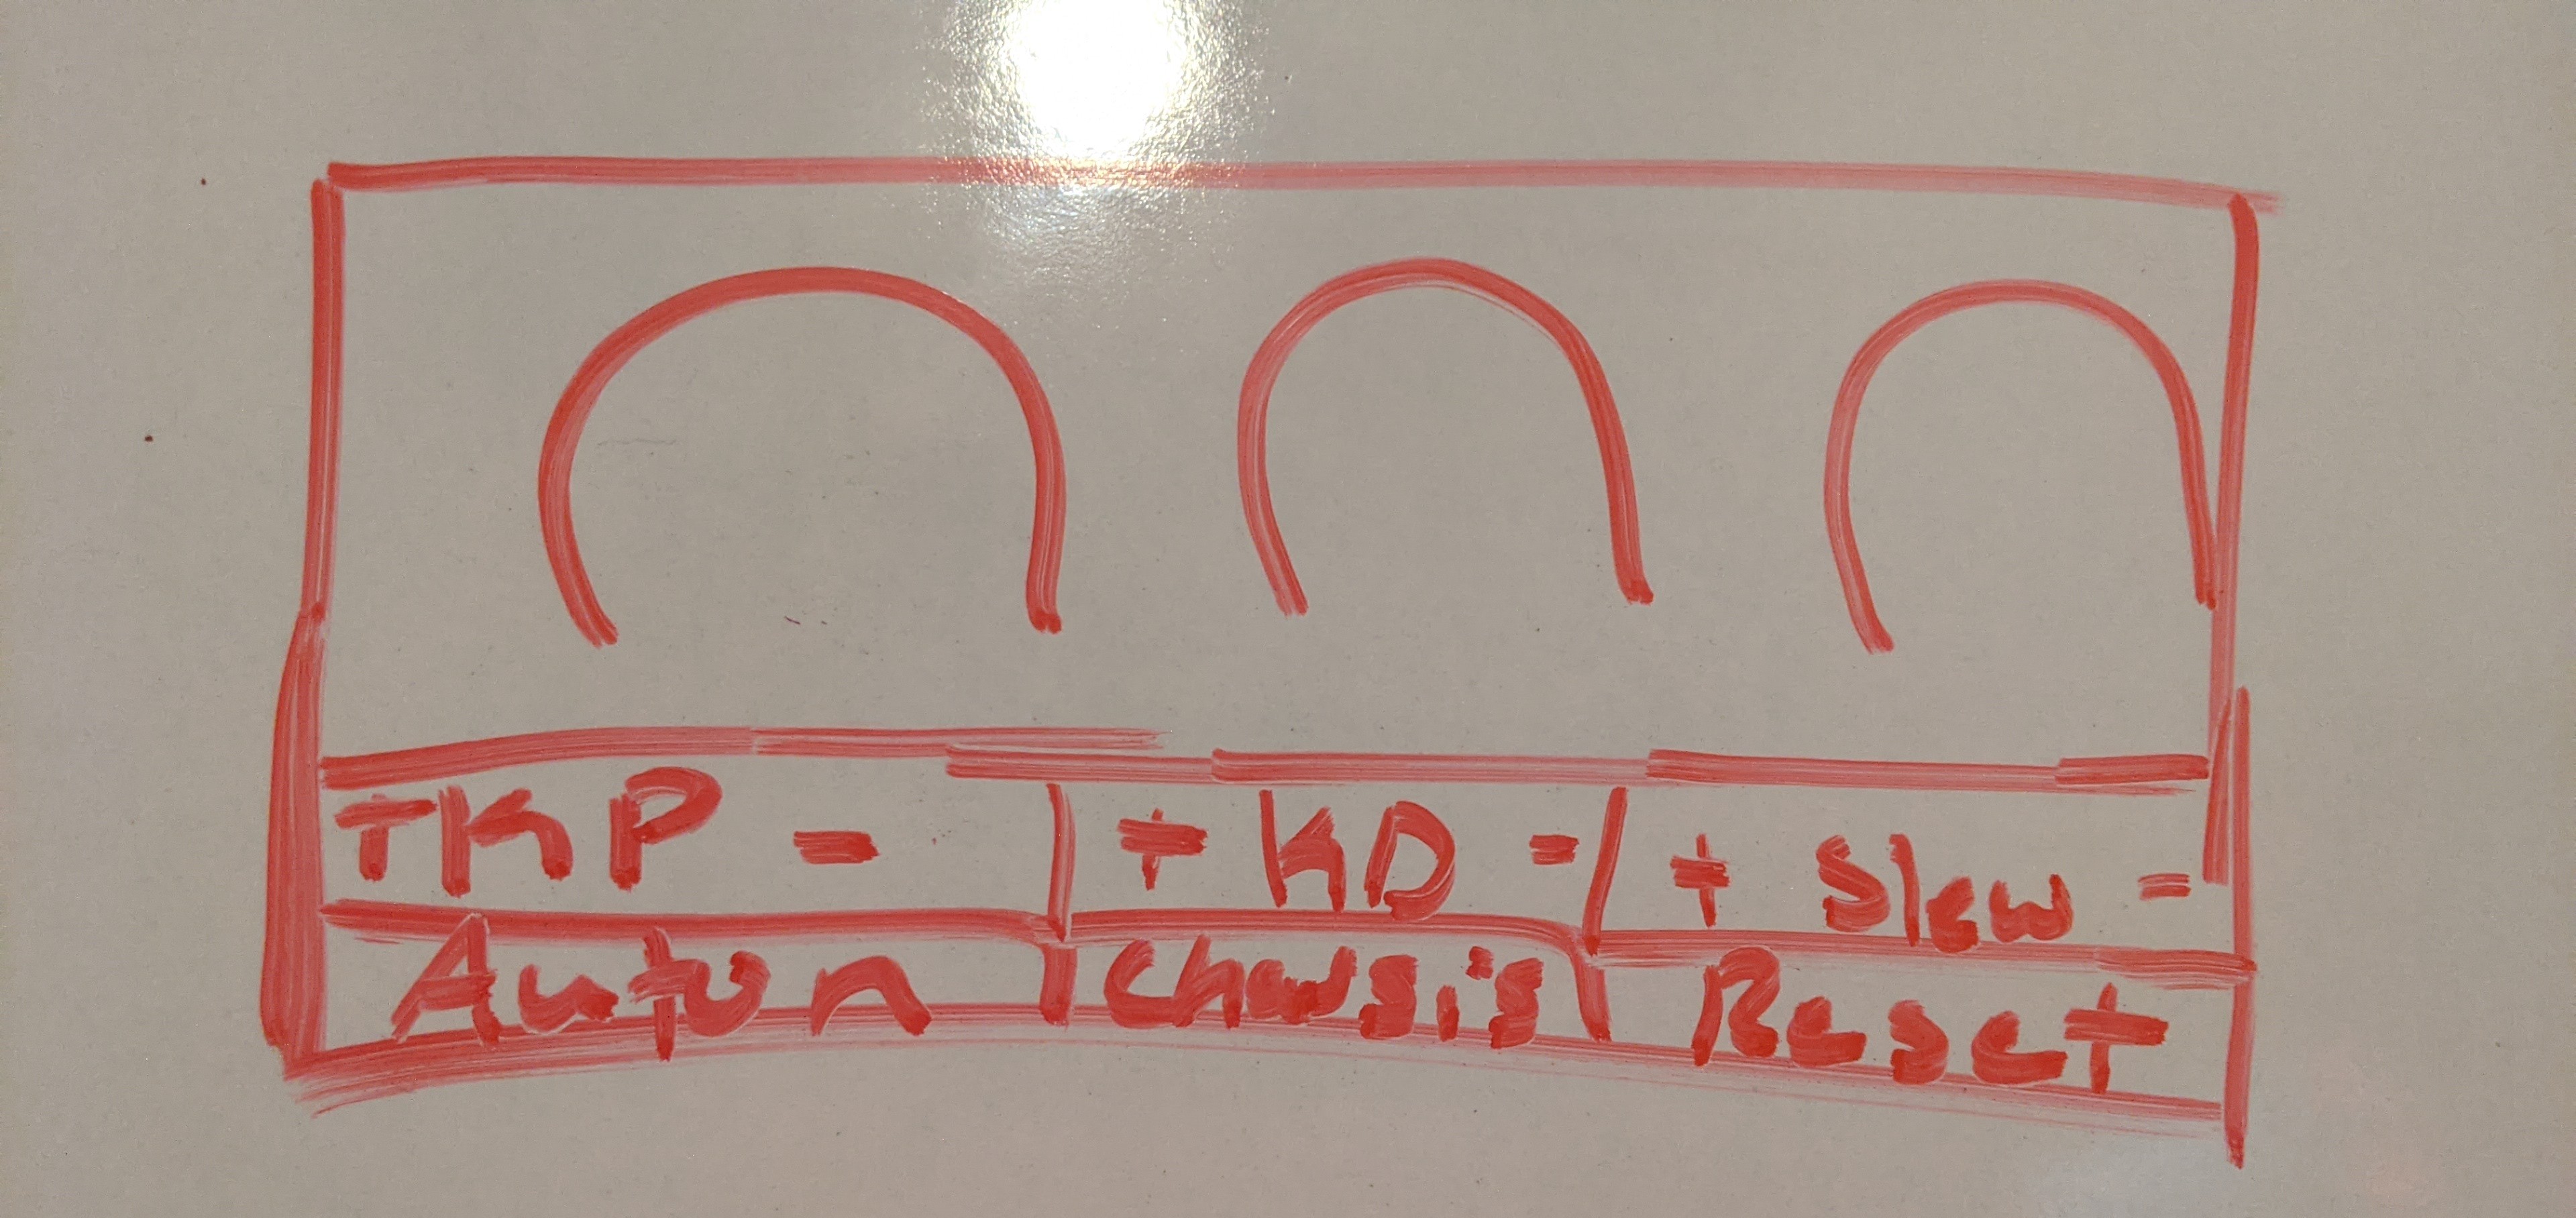 + KP - + KD - + Slew -
Auton Chassis Reset